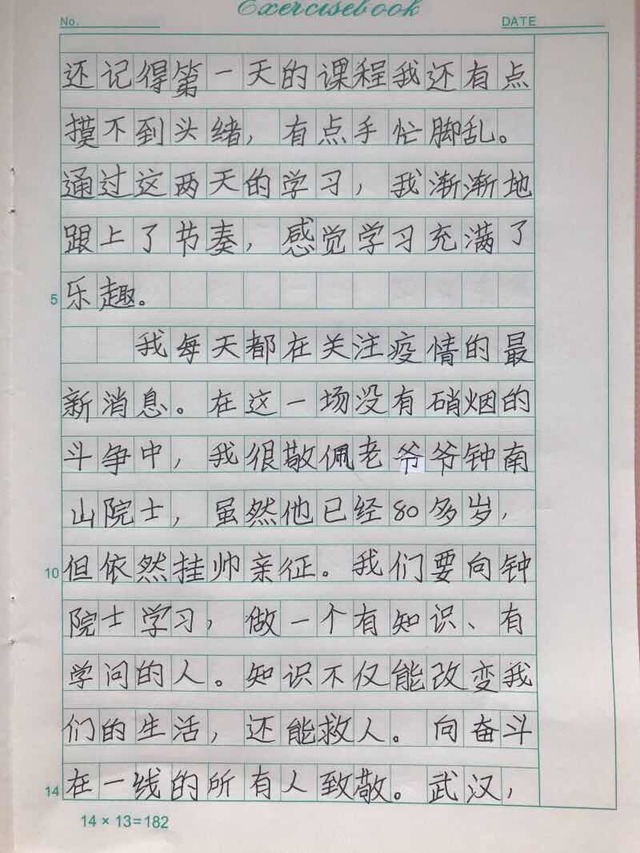 Exercisebook
No.
DATE
还记得第一天的课程我还有点
摸不到头绪，有点手忙脚乱。
通过这两天的学习，我渐渐地
跟上了节奏，感觉学习充满了
5 乐趣。
我每天都在关注疫情的最
新消息。在这一场没有硝烟的
斗争中，我很敬佩老爷爷钟南
山院士，虽然他已经80多岁，
10 但依然挂帅亲征。我们要向钟
院士学习，做一个有知识、有
学问的人。知识不仅能改变我
们的生活，还能救人。向奋斗
14 在一线的所有人致敬。武汉，
14×13=182